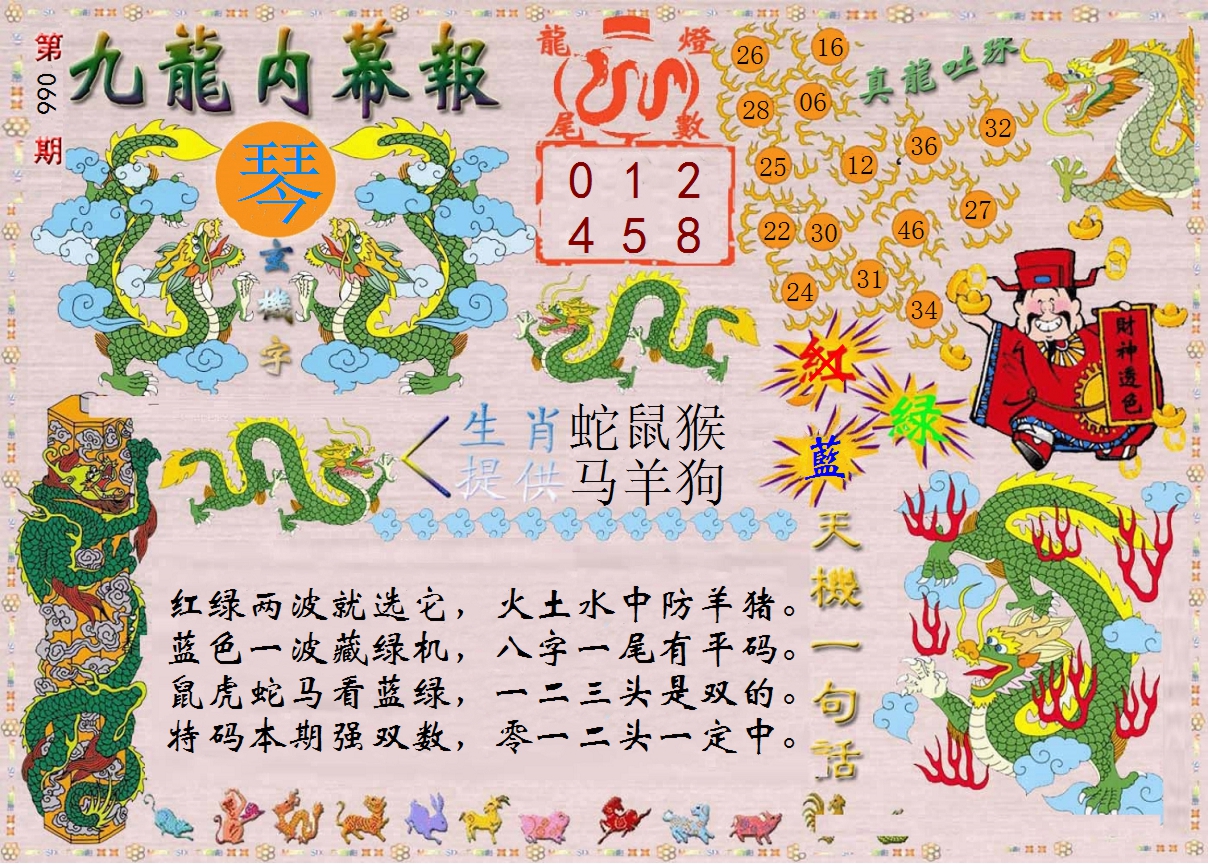 第
066
期
九龍内幕報
琴
玄
機
字
龍 燈
尾 數
0 1 2
4 5 8
真龍吐珠
26
16
28
06
25
12
36
32
22
30
46
27
24
31
34
財神透色
紅
绿
藍
生肖 蛇鼠猴
提供 马羊狗
天機一句话
红绿两波就选它，火土水中防羊猪。
蓝色一波藏绿机，八字一尾有平码。
鼠虎蛇马看蓝绿，一二三头是双的。
特码本期强双数，零一二头一定中。